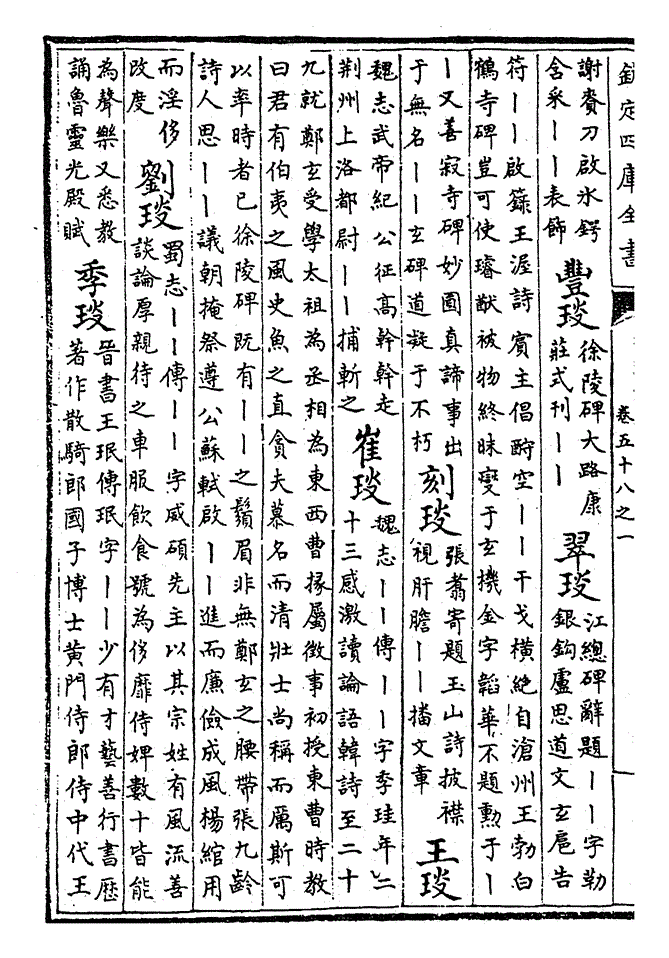 欽定四庫全書 卷五十八之一
謝賚刀啟氷鍔
含采｜｜表飾
豐琰
徐陵碑大路康
莊式刊｜｜
翠琰
江總碑辭題｜｜字勒
銀鈎盧思道文玄扈告
符｜｜啟籙王渥詩賓主倡酧空｜｜干戈横絶自滄州王勃白
鶴寺碑豈可使璿猷被物終昧燮于玄機金字韜華不題勲于｜
｜又善寂寺碑妙圖真諦事出
于無名｜｜玄碑道凝于不朽
刻琰
張翥寄題玉山詩披襟
視肝膽｜｜播文章
王琰
魏志武帝紀公征高幹幹走
荆州上洛都尉｜｜捕斬之
崔琰
魏志｜｜傳｜｜字季珪年二
十三感激讀論語韓詩至二十
九就鄭玄受學太祖為丞相為東西曹掾屬徵事初授東曹時教
曰君有伯夷之風史魚之直貪夫慕名而清壯士尚稱而厲斯可
以率時者已徐陵碑既有｜｜之鬚眉非無鄭玄之腰帶張九齡
詩人思｜｜議朝掩祭遵公蘇軾啟｜｜進而廉儉成風楊綰用
而淫侈
改度
劉琰
蜀志｜｜傳｜｜字威碩先主以其宗姓有風流善
談論厚親待之車服飲食號為侈靡侍婢數十皆能
為聲樂又悉教
誦魯靈光殿賦
季琰
晉書王珉傳珉字｜｜少有才藝善行書歴
著作散騎郎國子博士黄門侍郎侍中代王